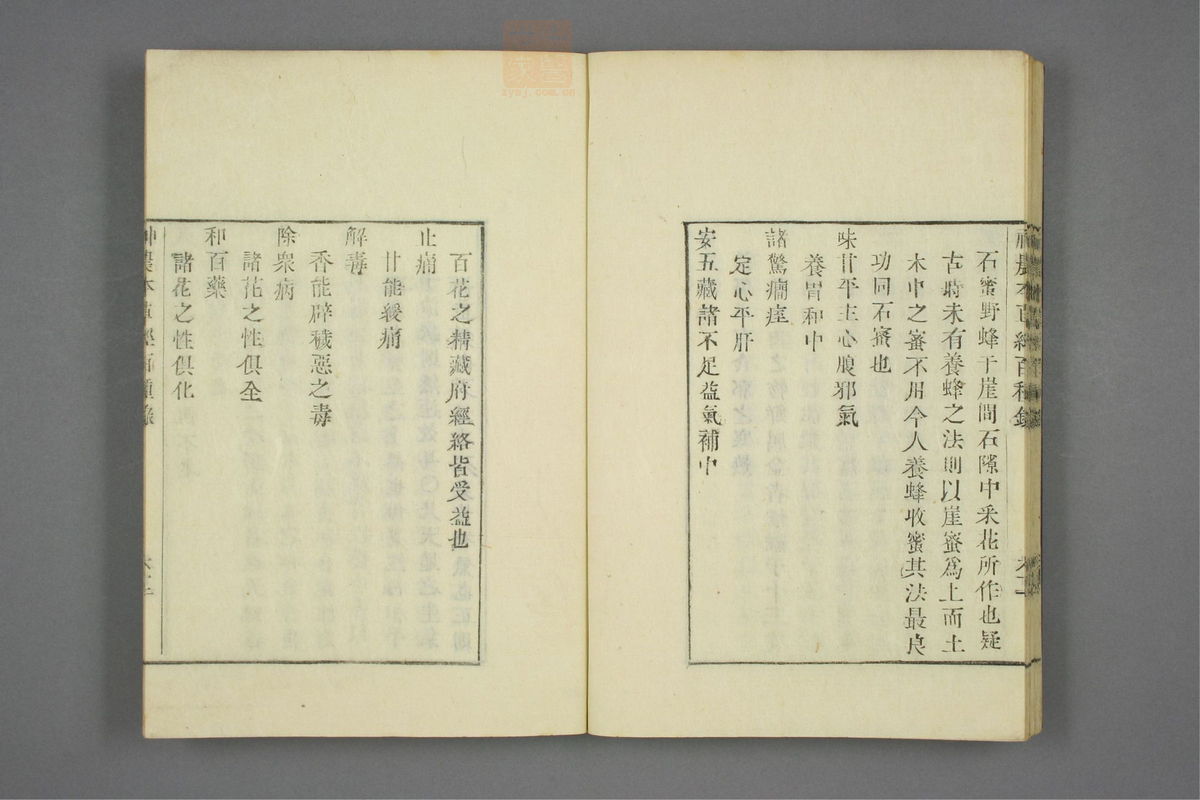 石蜜野蜂于崖間石隙中采花所作也疑
古時未有養蜂之法則以崖蜜爲上而土
木中之蜜不用今人養蜂收蜜其法最良
功同石蜜也
味甘平主心腹邪氣
養胃和中
諸驚癇痓
定心平肝
安五藏諸不足益氣補中
百花之精藏府經絡皆受益也
止痛
甘能緩痛
解毒
香能辟穢惡之毒
除衆病
諸花之性俱全
和百藥
諸花之性俱化
zysj.com.cn